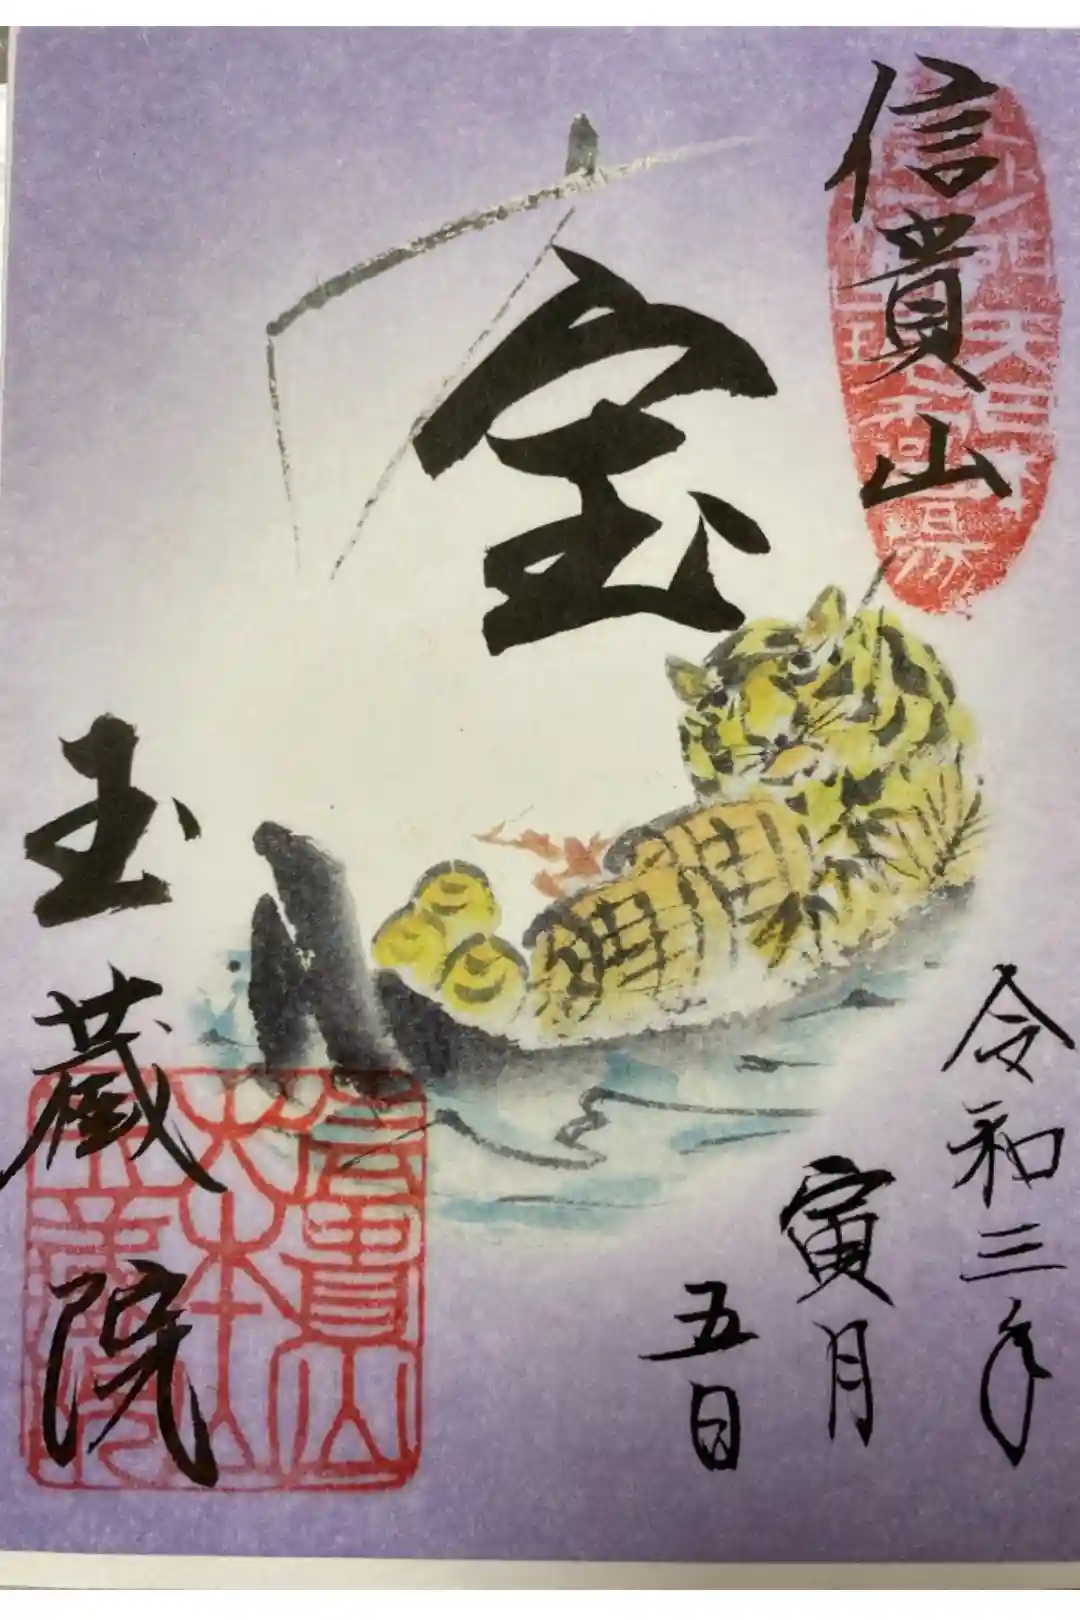 信貴山
宝
令和三年
寅月
五日
玉蔵院
信貴山
大本山